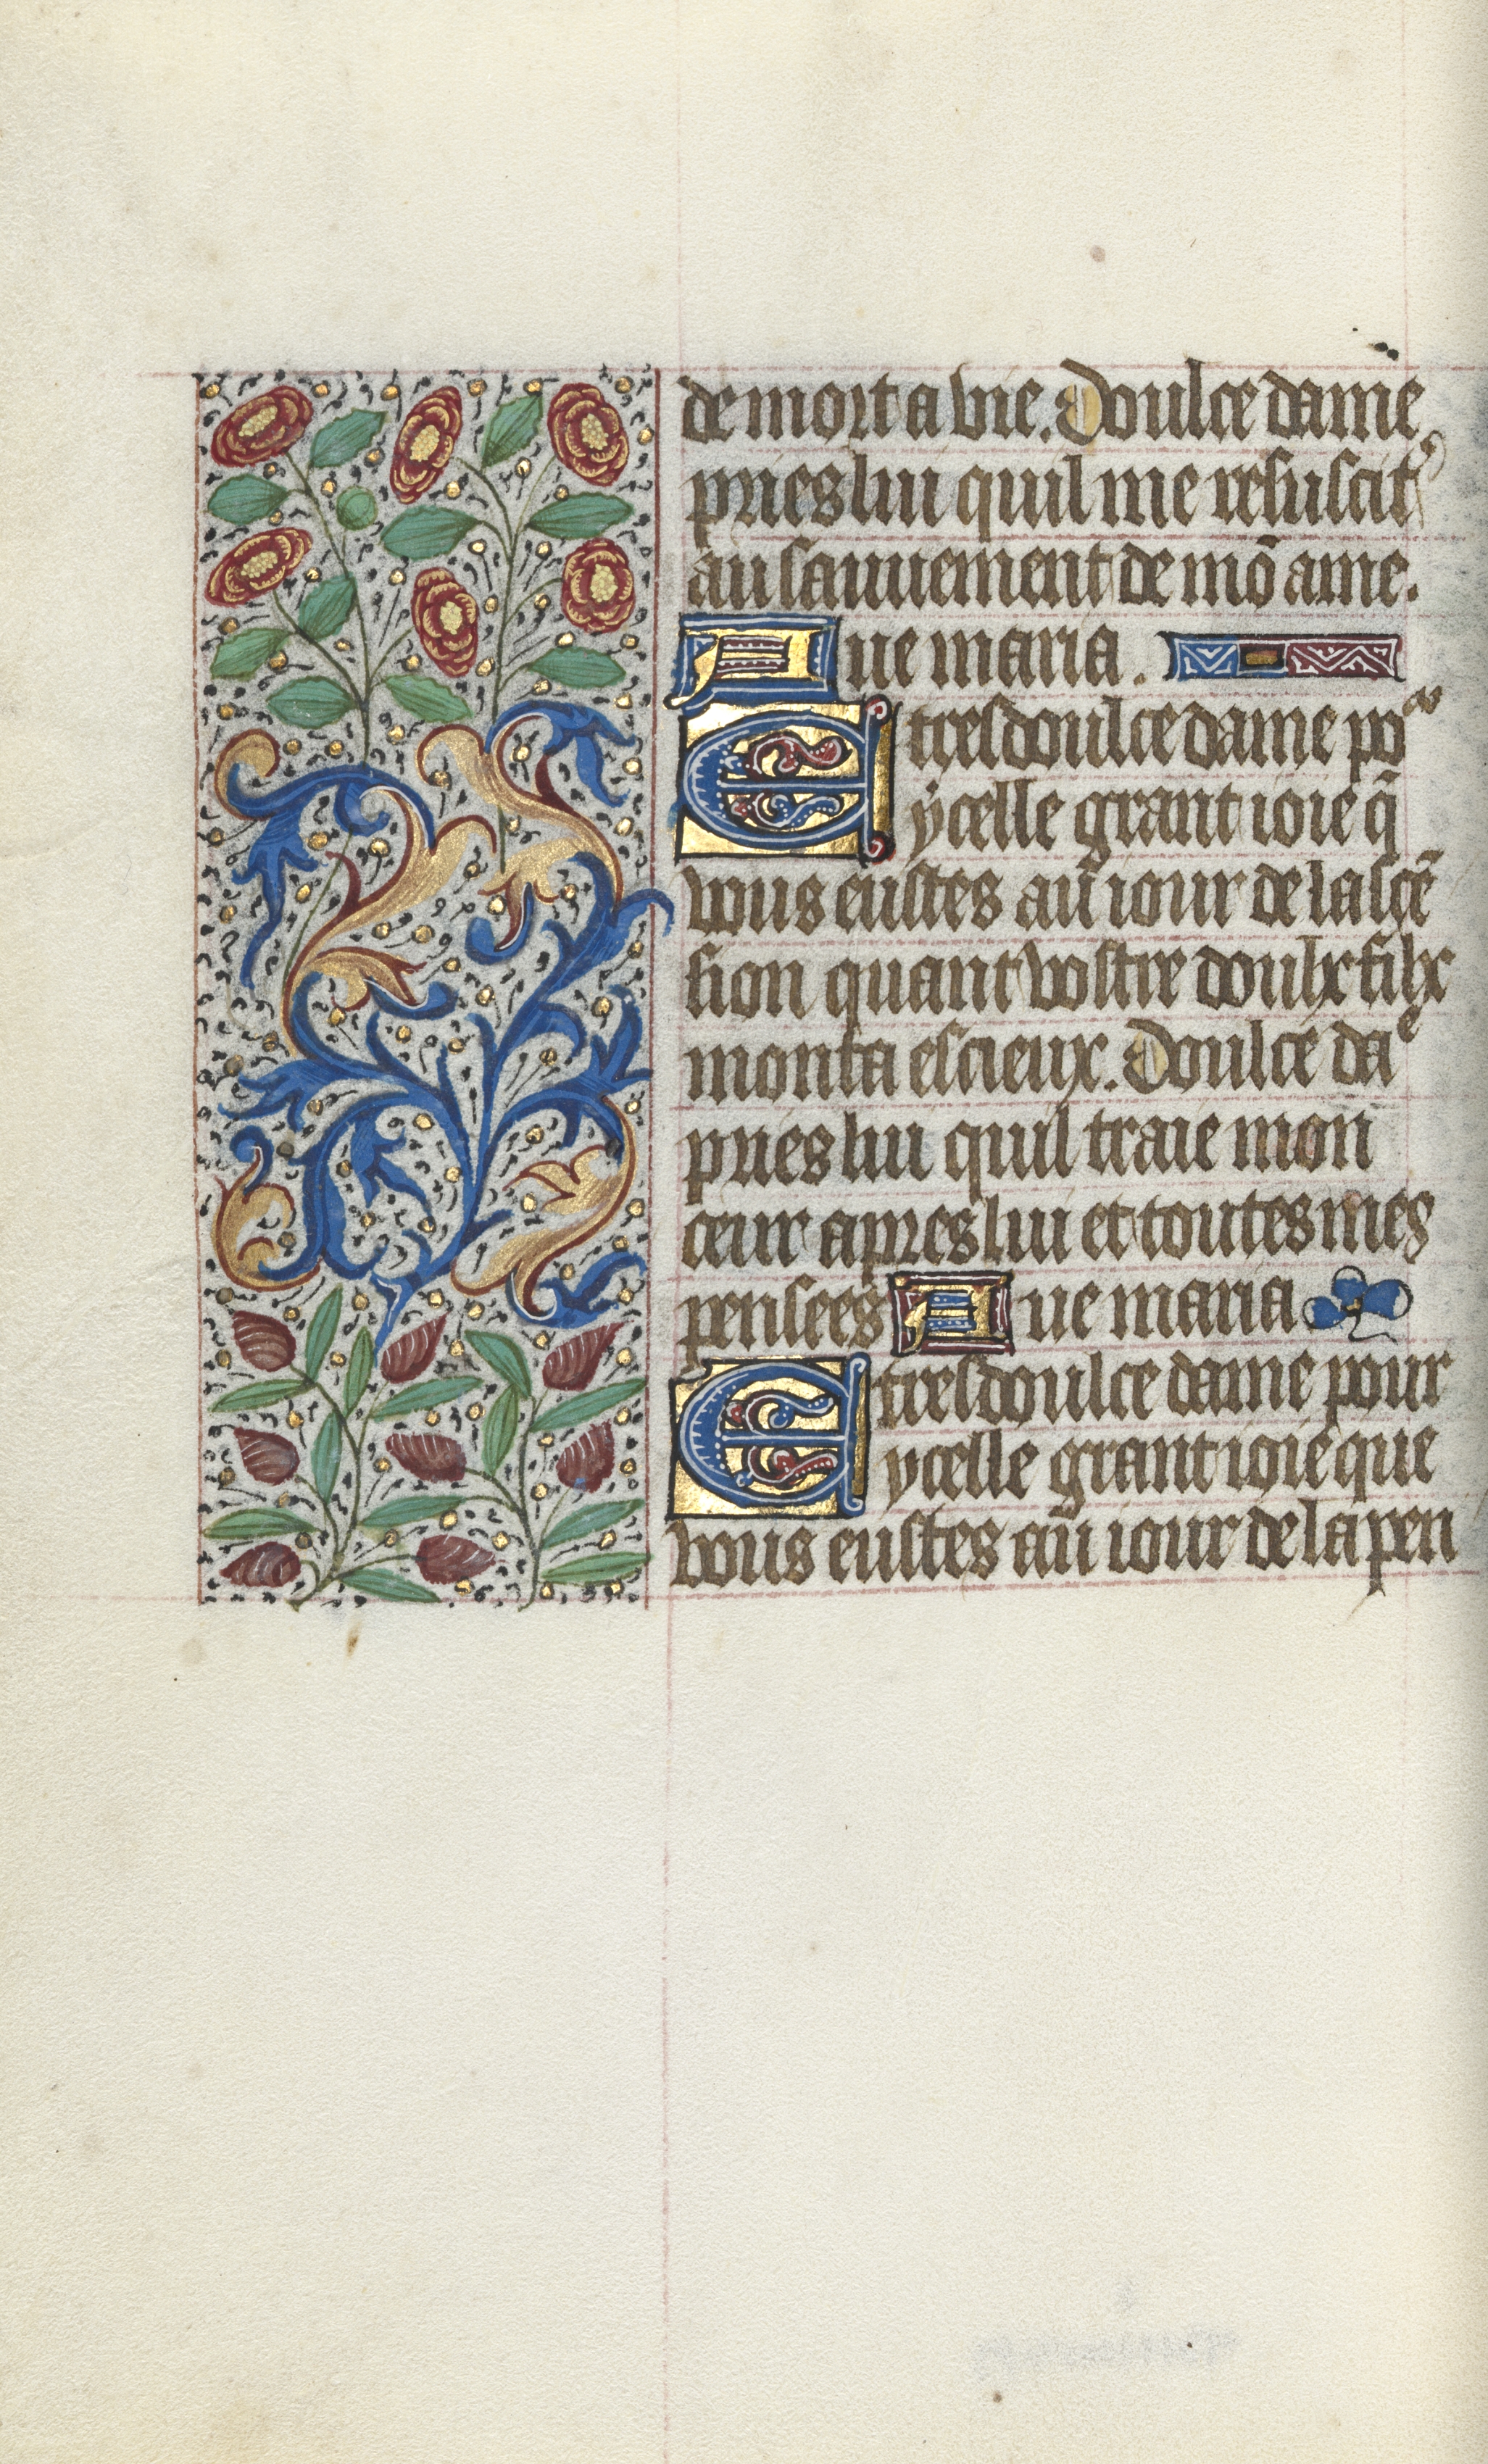 de mort a vie. Doulce dame
pries lui quil me resuscite
au sauuement de mõ ame.
Aue maria.
E tresdoulce dame po᷑
ẏcelle grant ioie q̃
vous eustes au iour de lascẽ
sion quant vostre doulx filx
monta es cieux. Doulce daᵉ
pries lui quil traie mon
cœur apres lui et toutes mes
pensees Aue maria
E tresdoulce dame pour
ycelle grant ioie que
vous eustes au iour de la pen